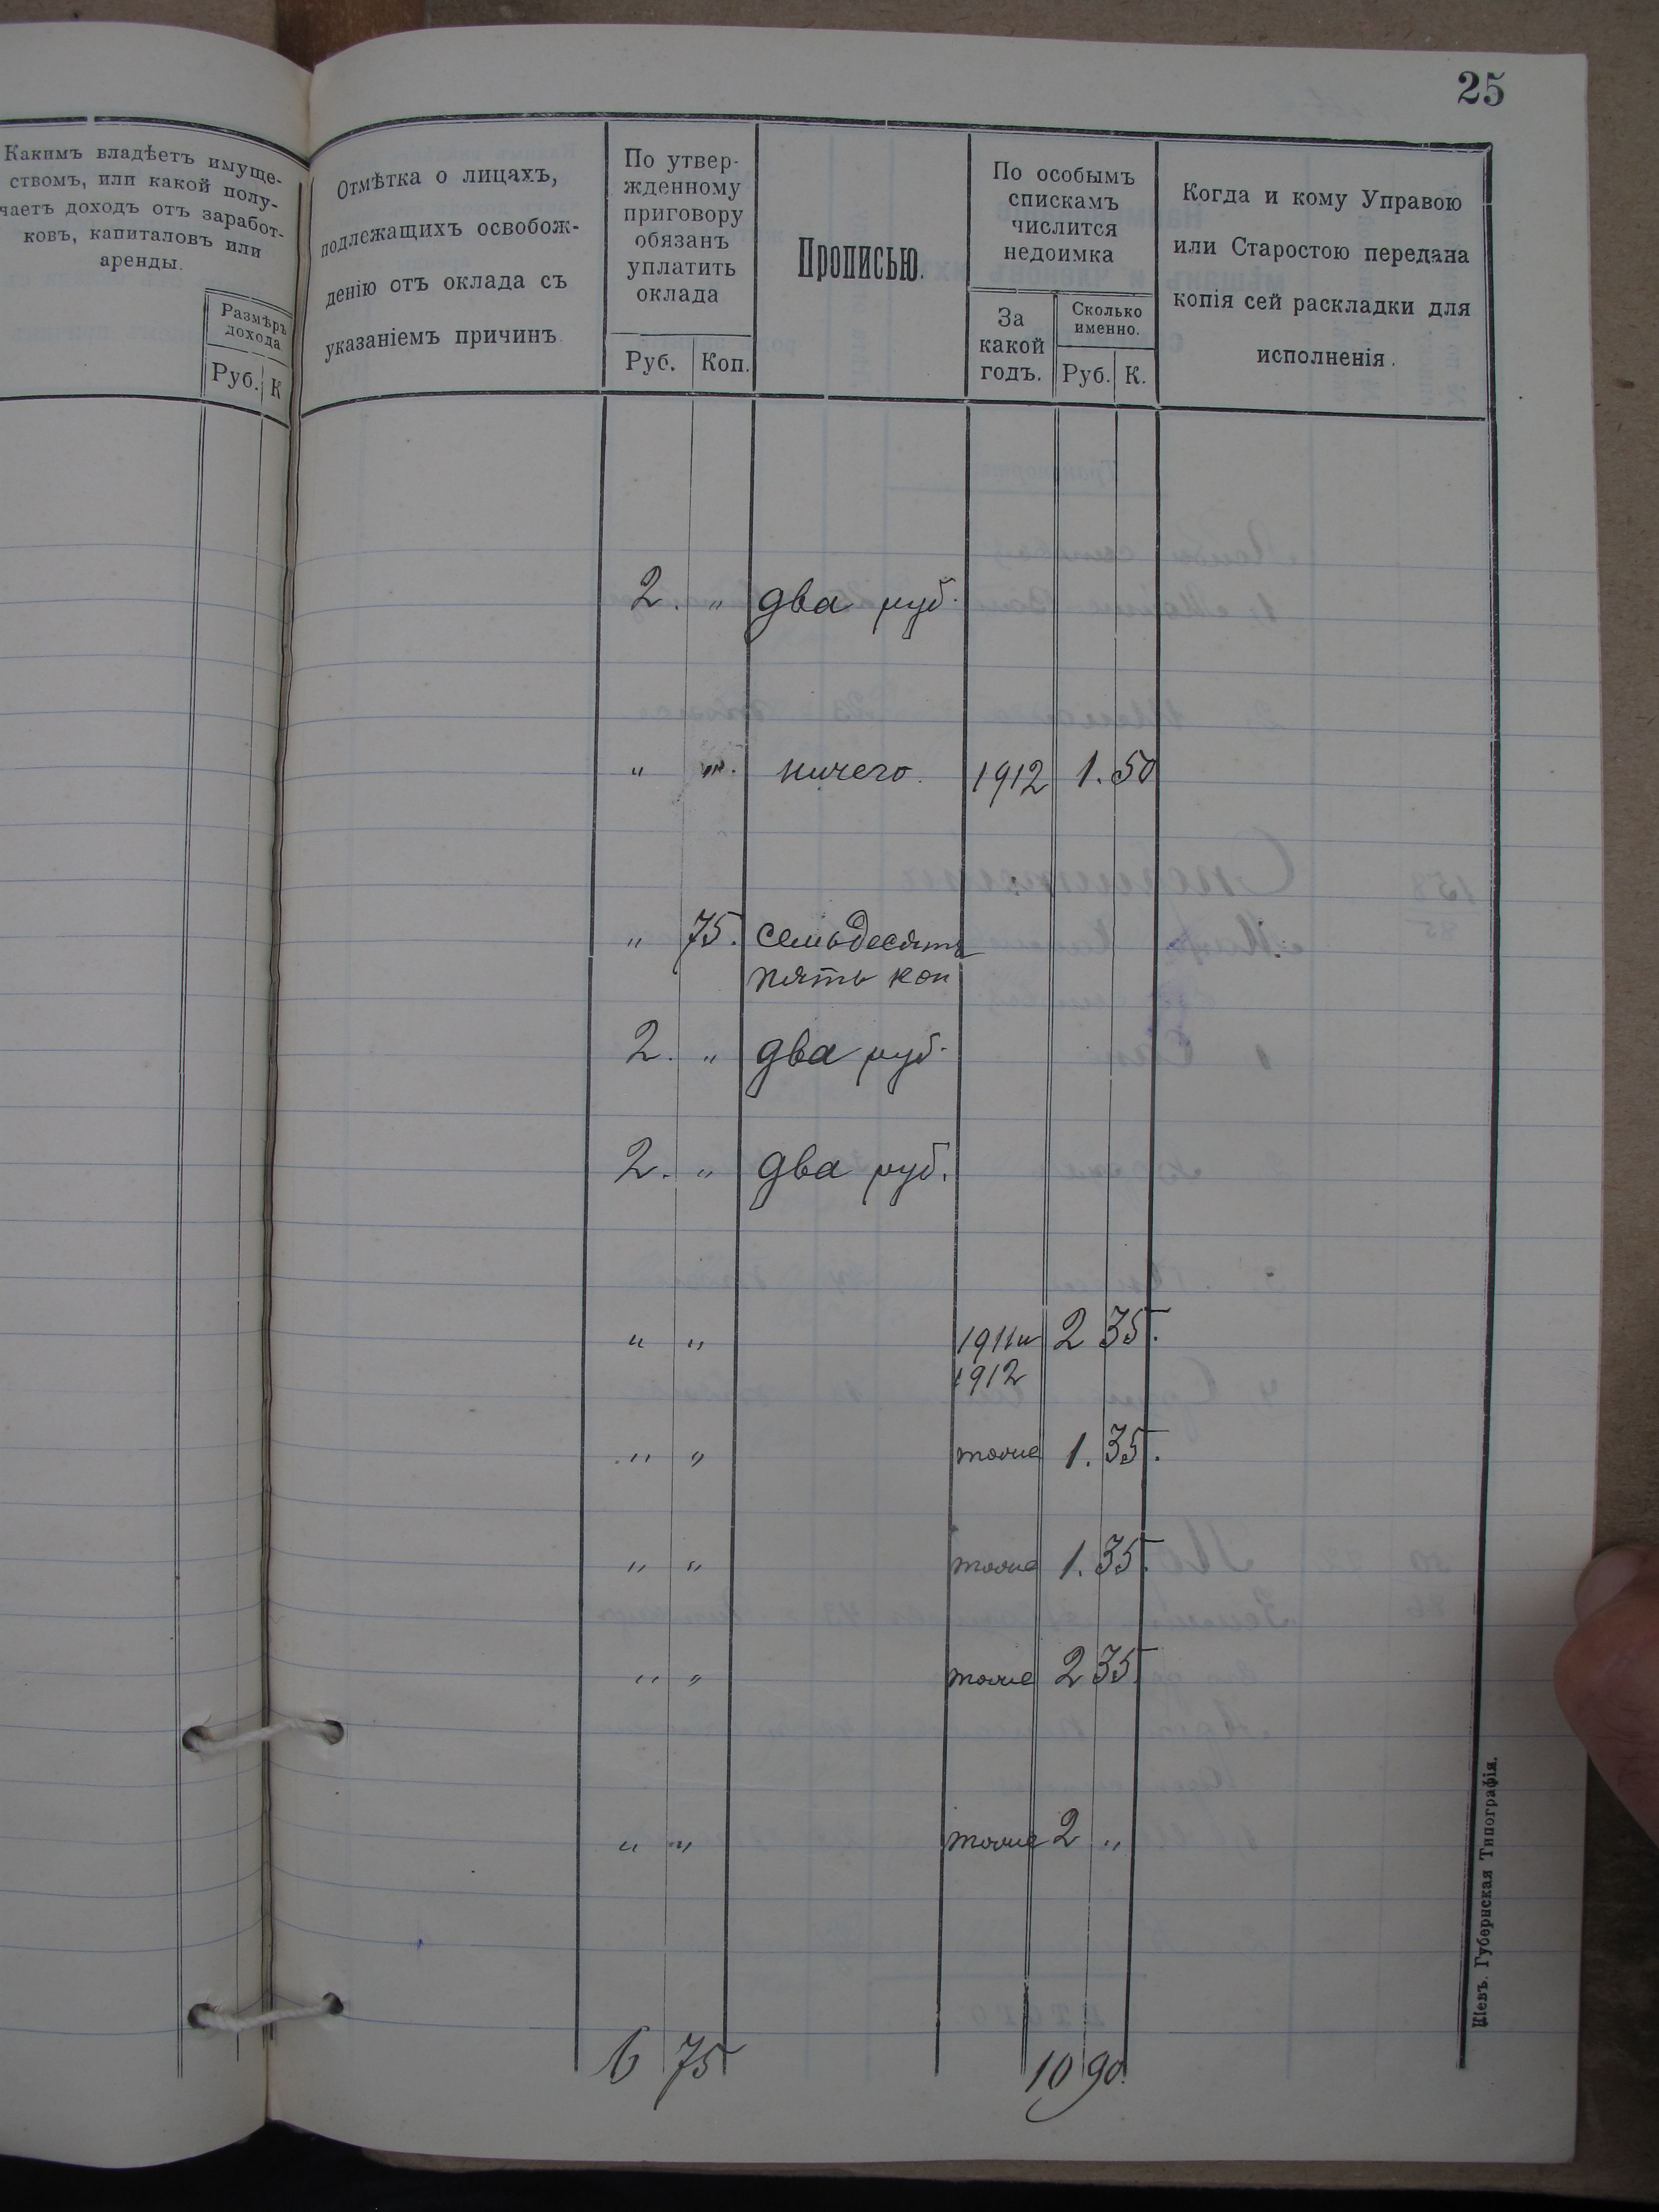 25
Какимъ владѣетъ имуще-
ствомъ, или какой полу-
чаетъ доходъ отъ заработ-
ковъ, капиталовъ или
аренды.
Размѣръ
дохода
Руб. К
Отмѣтка о лицахъ,
подлежащихъ освобож-
денію отъ оклада съ
указаніемъ причинъ
По утвер-
жденному
приговору
обязанъ
уплатить
оклада
Руб. Коп.
Прописью.
По особымъ
спискамъ
числится
недоимка
За
какой
годъ.
Сколько
именно.
Руб. К.
Когда и кому Управою
или Старостою передана
копія сей раскладки для
исполненія.
2. " два руб.
" ". ничего. 1912 1. 50
" 75. семьдесять
пять коп
2. " два руб.
2. " два руб.
" " 1911 и 2 35.
1912
" " тоже 1. 35.
" " тоже 1. 35.
" " тоже 2 35.
" " тоже 2 "
6 75 10 90.
Кіевъ. Губернская Типографія.